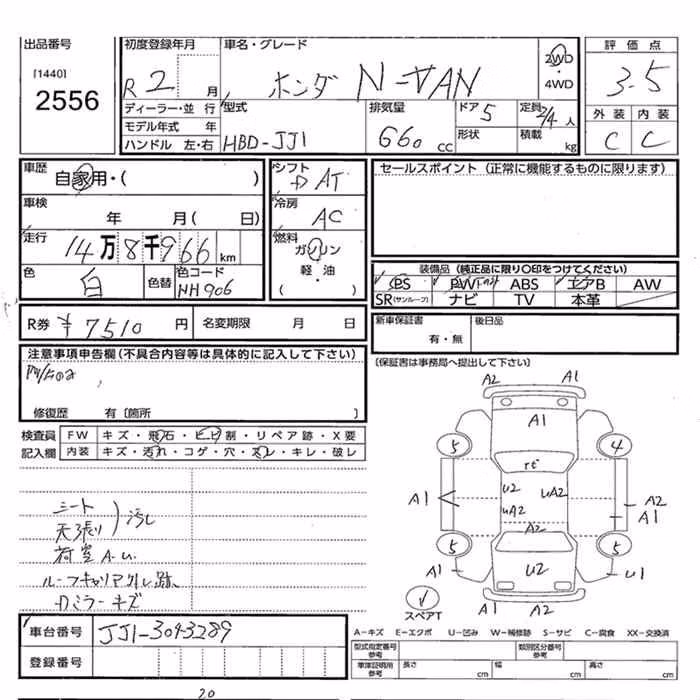 出品番号
[1440]
2556
初度登録年月
R 2 月
車名・グレード
ホンダ N-VAN
2WD
・
4WD
評価点
3.5
ディーラー・並行
モデル年式 年
ハンドル 左・右
型式
HBD-JJ1
排気量
660 cc
ドア 5
形状
定員 2/4 人
積載 kg
外装 内装
C C
車歴
自家用・( )
シフト
AT
セールスポイント (正常に機能するものに限ります)
車検
年 月( 日)
冷房
AC
走行
14万8千966 km
燃料
ガソリン
軽・油
( )
色
白
色替
色コード
NH906
装備品 (純正品に限り○印をつけてください)
PS PW ABS エアB AW
SR(サンルーフ) ナビ TV 本革
R券 ¥7510 円
名変期限 月 日
新車保証書
有・無
後日品
(保証書は事務局へ提出して下さい)
注意事項申告欄(不具合内容等は具体的に記入して下さい)
修復歴 有 [箇所
検査員
記入欄
FW キズ・飛石・ヒビ割・リペア跡・X要
内装 キズ・汚れ・コゲ・穴・スレ・キレ・破レ
シート
天張り
汚レ
荷室 A.U.
ルーフキャリア外し跡
Dミラーキズ
A2 A1
A1
5 4
rt
U2 uA2
A1 uA2 A2
A1
A2
5 5
A1 U2 U1
A1 A2
スペアT
車台番号 JJ1-3043289
登録番号
A-キズ E-エクボ U-凹み W-補修跡 S-サビ C-腐食 XX-交換済
型式指定番号
参考
類別区分番号
参考
車庫証明用
参考
長さ cm 幅 cm 高さ cm
20